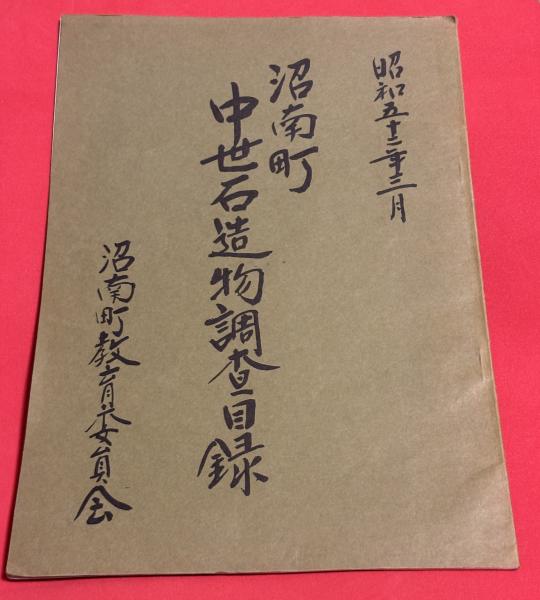 昭和五十二年三月
沼南町
中世石造物調査目録
沼南町教育委員会